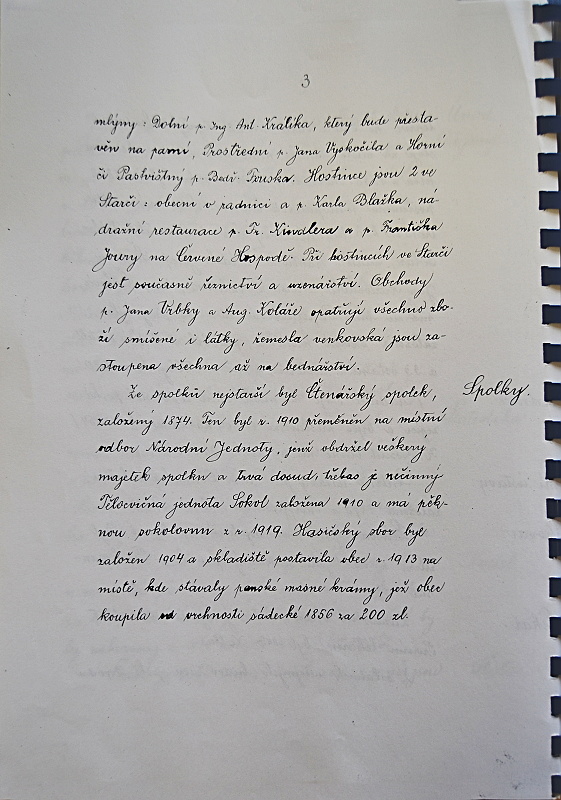 3
mlýny: Dolní p. Ing. Ant. Králíka, který bude přesta-
věn na parní, Prostřední p. Jana Vyskočila a Horní
či Pastvištný p. Bedř. Fouska. Hostince jsou 2 ve
Starči: obecní v radnici a p. Karla Blažka, ná-
dražní restaurace p. Fr. Kindlera a p. Františka
Joury na Červené Hospodě. Při hostincích ve Starči
jest současně řeznictví a uzenářství. Obchody
p. Jana Vrbky a Aug. Koláře opatřují všechno zbo-
ží smíšené i látky, řemesla venkovská jsou za-
stoupena všechna až na bednářství.
Ze spolků nejstarší byl Čtenářský spolek,
Spolky.
založený 1874. Ten byl r. 1910 přeměněn na místní
odbor Národní Jednoty, jenž obdržel veškerý
majetek spolku a trvá dosud, třebas je nečinný
Tělocvičná jednota Sokol založena 1910 a má pěk-
nou sokolovnu z r. 1919. Hasičský sbor byl
založen 1904 a skladiště postavila obec r. 1913 na
místě, kde stávaly panské masné krámy, jež obec
koupila od vrchnosti sádecké 1856 za 200 zl.